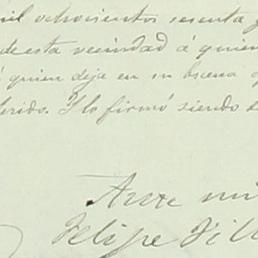 mil ochocientos sesenta y
de esta vecindad á quien
quien deja en su buena o
erido. Y lo firmó siendo
Ante mi
Felipe Vill